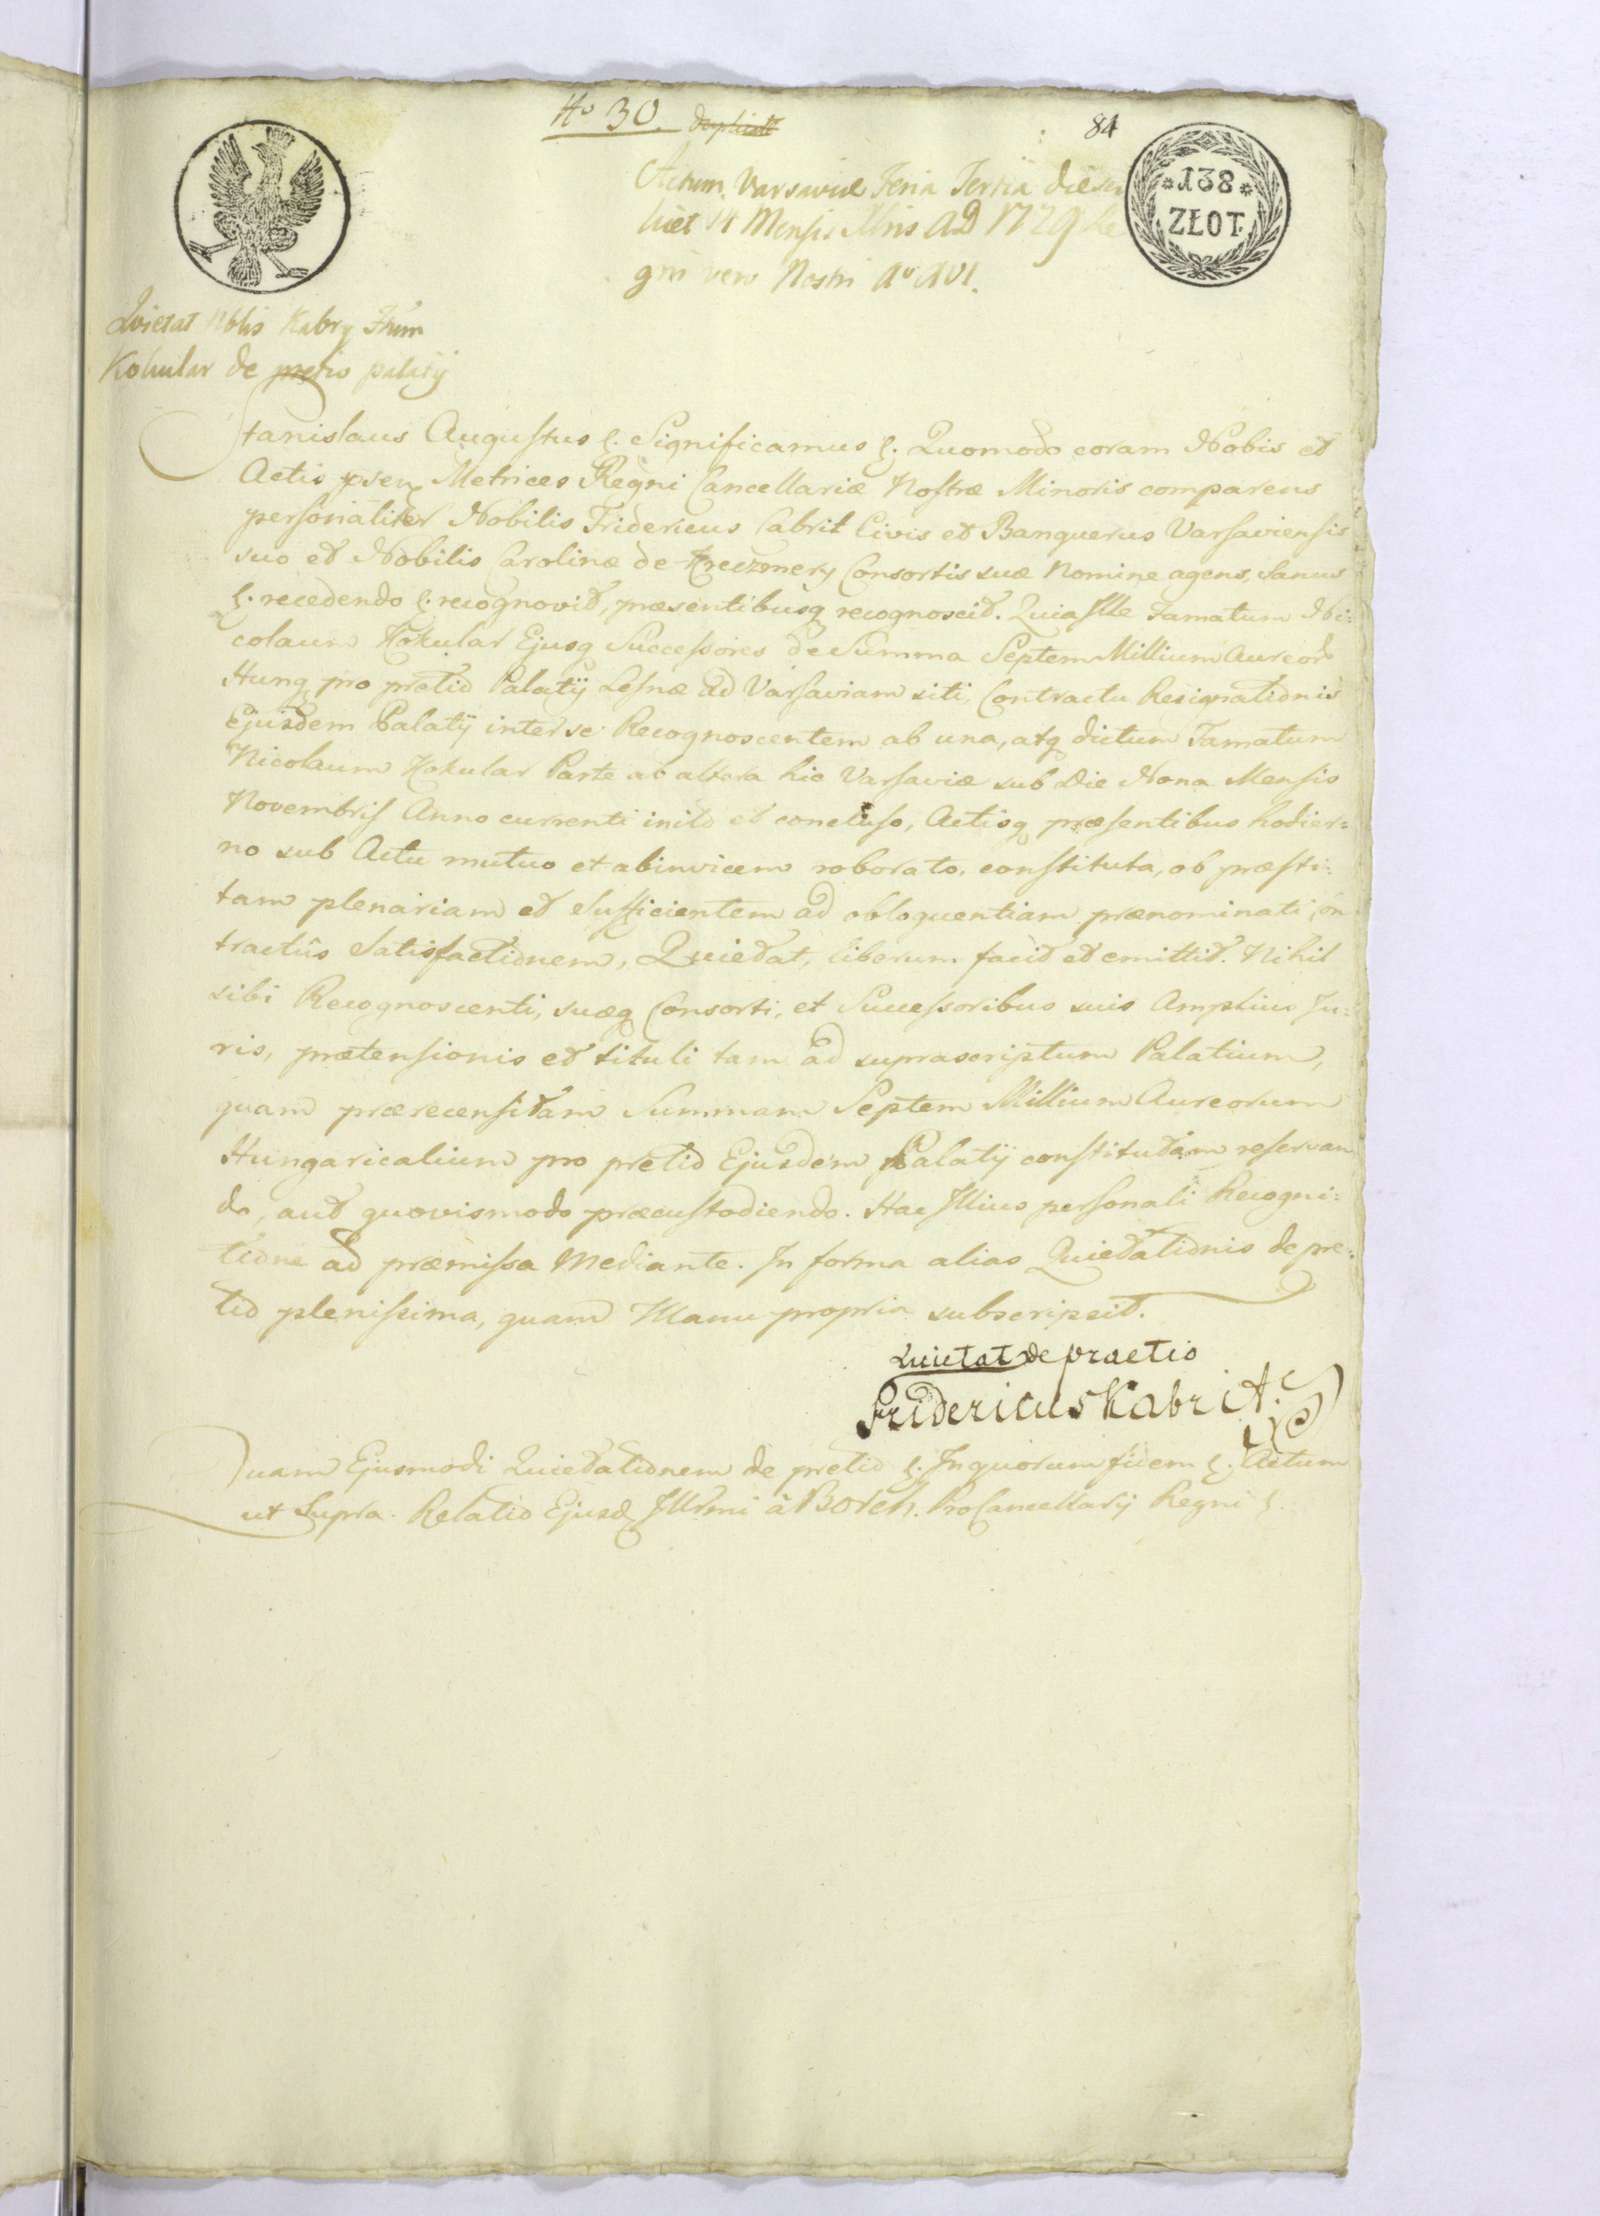 No 30. duplicat
84
*138*
ZŁOT.
Actum Varsaviæ Feria Tertia die
14 Mensis Xbris AD 1779 Re
gni vero Nostri Ao XVI.
Quietat Nblis Kabry Fmm
Kokular de pretio palatij
Stanislaus Augustus ę. Significamus ę. Quomodo coram Nobis et
Actis psen Metrices Regni Cancellariæ Nostræ Minoris comparens
personaliter Nobilis Fridericus Cabrit Civis et Banquerus Varsaviensis
suo et Nobilis Carolinæ de Kreczmery Consortis suæ Nomine agens, Sanus
ę. recedendo ę. recognovit, præsentibusq recognoscit. Quia Ille Famatum Ni=
colaum Kokular Ejusq Successores de Summa Septem Millium Aureor
Hung pro pretio Palatij Lesnæ ad Varsaviam siti, Contractu Resignationis
Ejusdem Palatij inter se Recognoscentem ab una, atq dictum Famatum
Nicolaum Kokular Parte ab altera hic Varsaviæ sub Die Nona Mensis
Novembris Anno currenti inito et concluso, Actisq præsentibus hodier=
no sub Actu mutuo et abinvicem roborato, constituta, ob præsti=
tam plenariam et sufficientem ad obloquentiam prænominati Con
tractûs Satisfactionem, Quietat, liberum facit et emittit. Nihil
sibi Recognoscenti, suæq Consorti, et Successoribus suis Amplius Ju=
ris, prætensionis et tituli tam ad suprascriptum Palatium,
quam præreconsitam Summam Septem Millium Aureorum
Hungaricalium pro pretio Ejusdem Palatij constitutam reservan
do, aut quovismodo præcustodiendo. Hac Illius personali Recogni=
tione ad præmissa Mediante. In forma alias Quietationis de pre=
tio plenissima, quam Manu propria subscripsit.
Quietat de praetio
Fridericus Kabrit.
Quam Ejusmodi Quietationem de pretio ę. In quorum fidem ę. Actum
ut Supra. Relatio Ejusd Illrmi à Borch. ProCancellarij Regni ę.